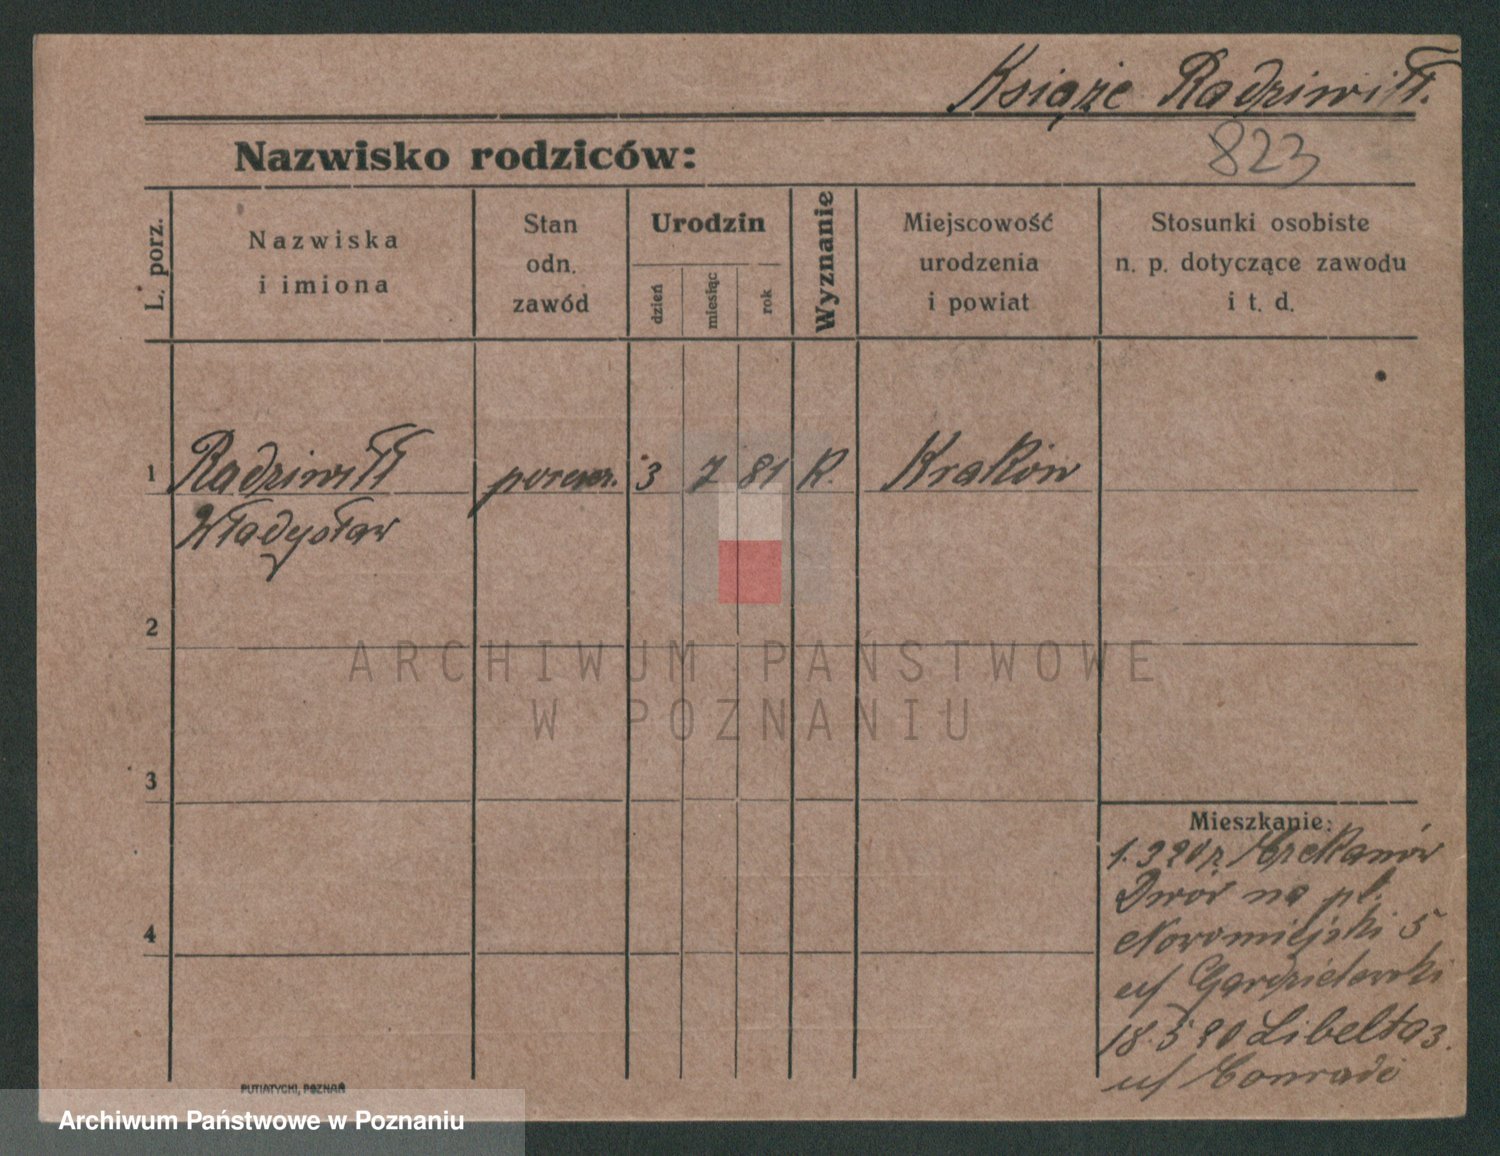 Książe Radziwiłł.
823
Nazwisko rodziców:
L. porz.
Nazwiska
i imiona
Stan
odn.
zawód
Urodzin
dzień
miesiąc
rok
Wyznanie
Miejscowość
urodzenia
i powiat
Stosunki osobiste
n. p. dotyczące zawodu
i t. d.
1 Radziwiłł 3 7 81 K. Kraków
Władysław
2
3
4
ARCHIWUM PAŃSTWOWE
W POZNANIU
Mieszkanie:
Dwór na pl.
Nowomiejski 5
18.5 20 Libelta 3.
PUTIATYCKI, POZNAŃ
Archiwum Państwowe w Poznaniu